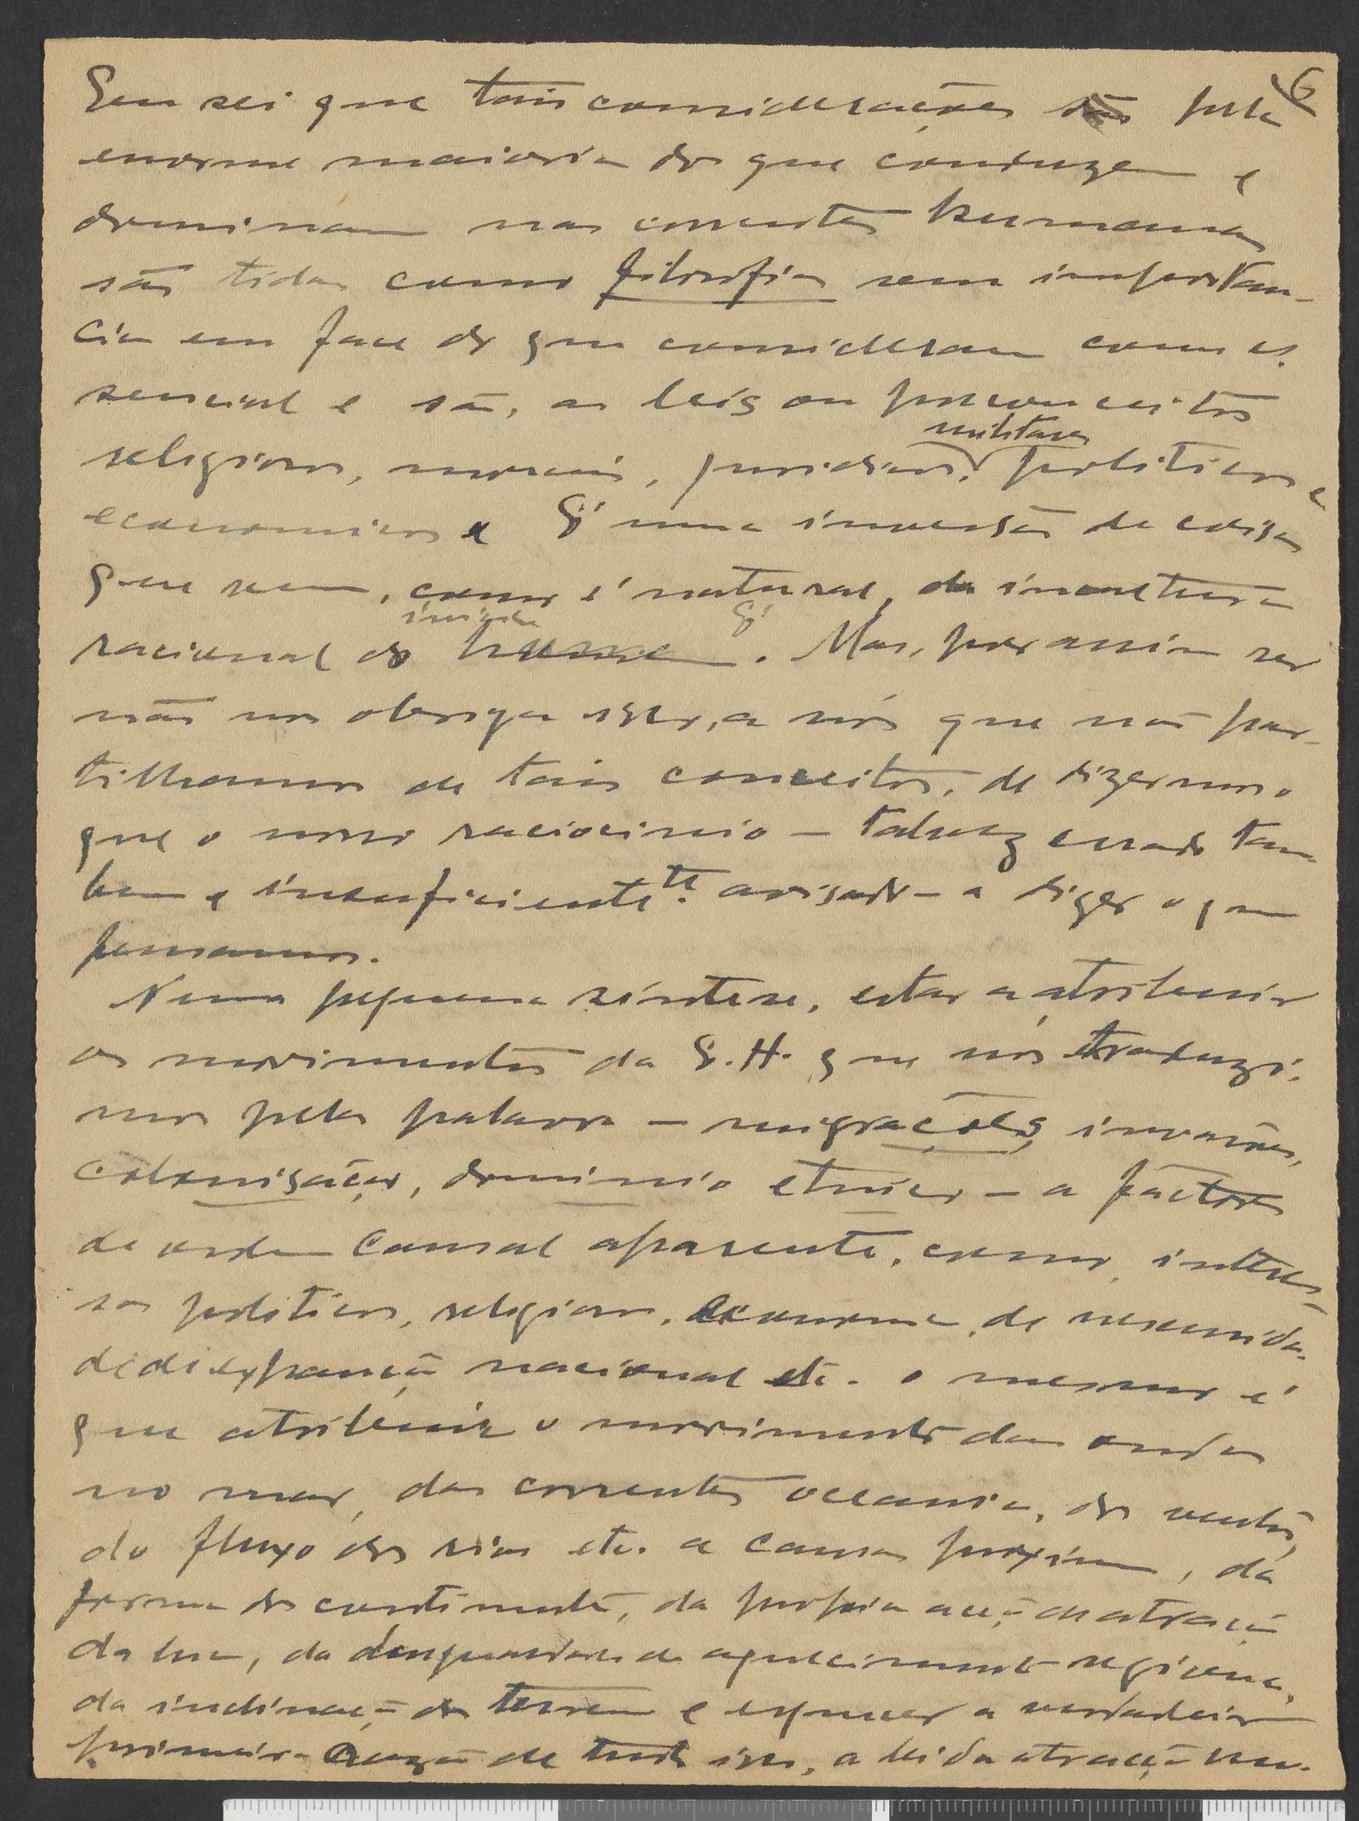 6
Eu sei que tais considerações são pela
enorme maioria dos que conduzem e
dominam nas correntes humanas
são tidas como filosofia sem importan-
cia em face do que consideram como es-
sencial e são, as leis ou preconceitos
religiosos, morais, juridicos, militares politicos e
economicos e É uma inversão de coisas
que vem, como é natural, da incultura
racional do
Mas, por assim ser
não nos obriga isso, a nós que não par-
tilhamos de tais conceitos, de dizermos o
que o nosso raciocinio – talvez errado tam
bem e insuficiente.te avisado – a dizer o que
pensamos.
Numa pequena síntese, estar a atribuir
os movimentos da E.H. que nós traduzi-
mos pelas palavras – migrações, invasões,
colonisações, dominio etnico – a factores
de ordem causal aparente, como, interes-
ses politicos, religiosos, economia, de necessida-
de de expansão nacional etc. o mesmo é
que atribuir o movimento das ondas
no mar, das correntes oceanicas, dos ventos,
do fluxo dos rios etc. a causas proximas, da
forma dos continentes, da propria acção de atracção
da lua, da desigualdade de aquecimento regional,
da inclinação dos terrenos e esquecer a verdadeira
primeira razão de tudo isso, a lei da atracção uni-